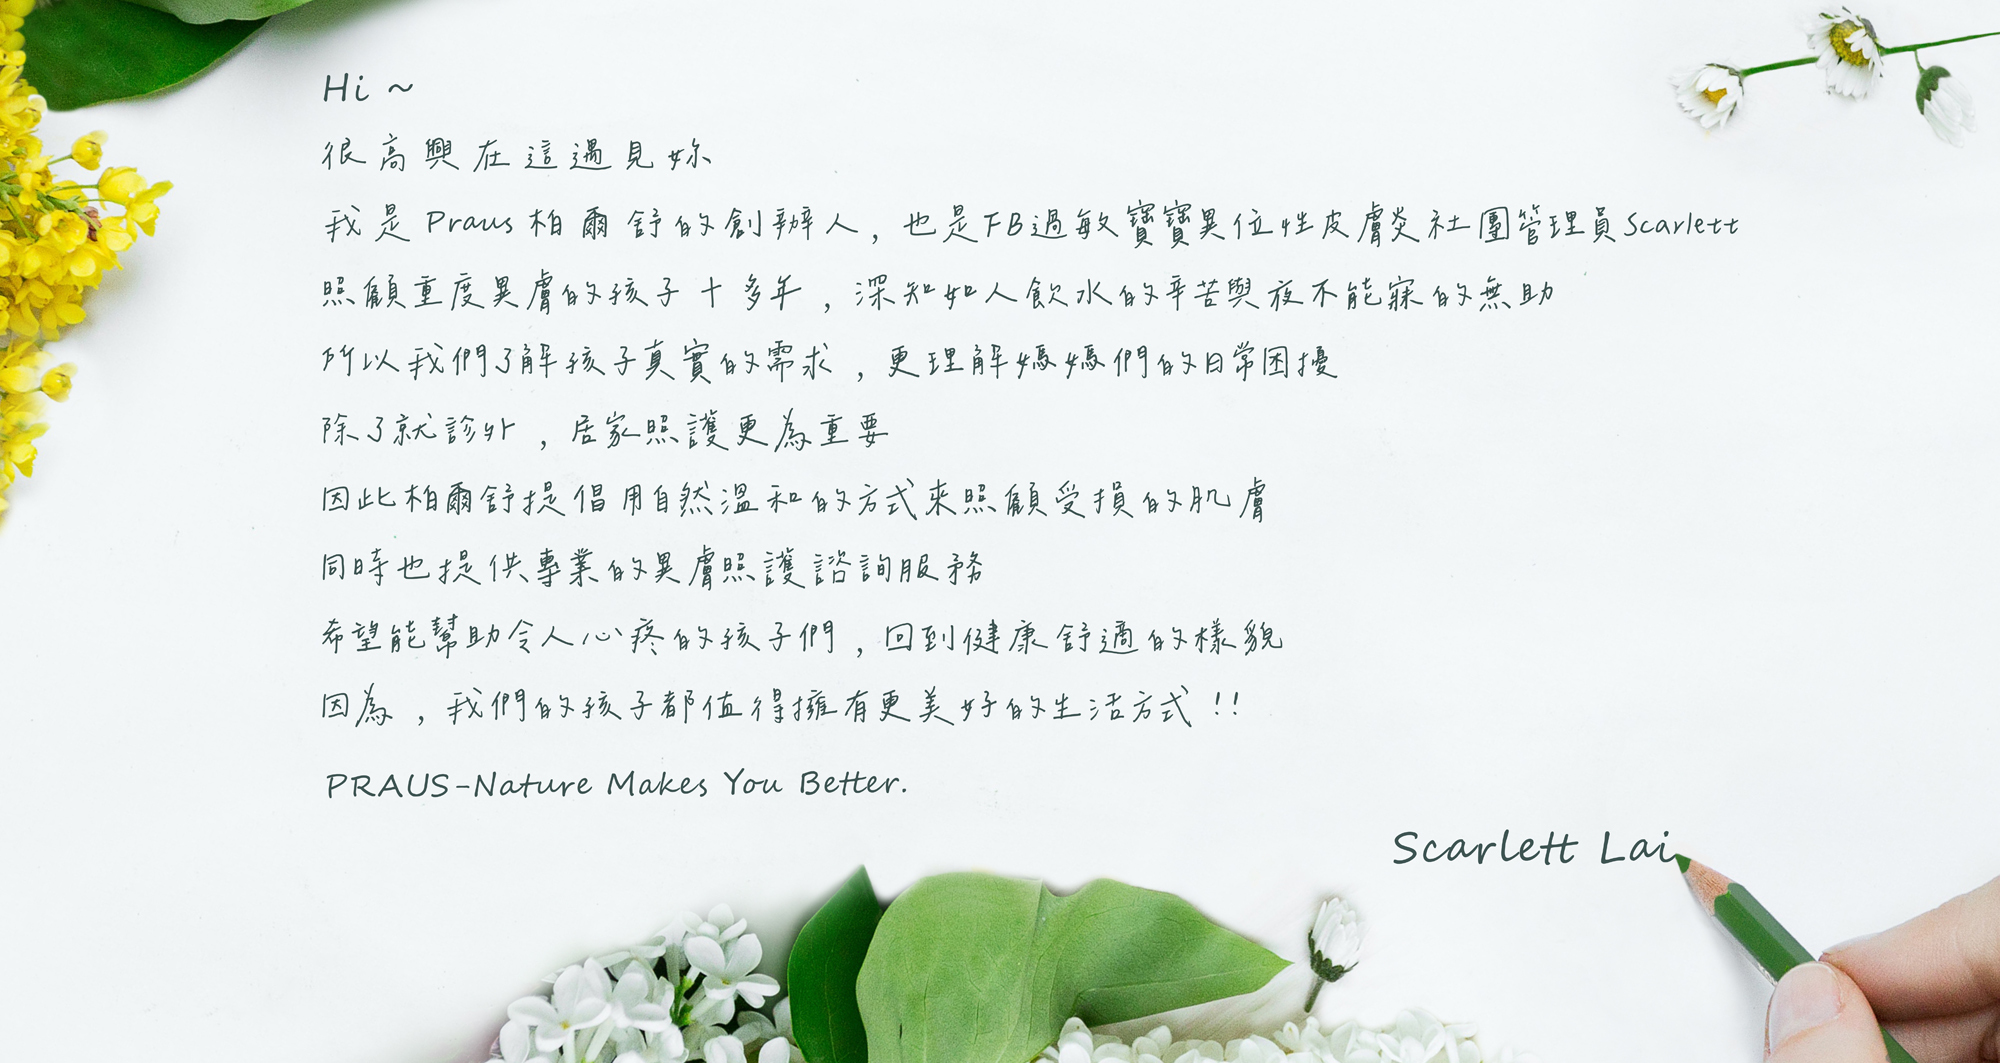 Hi ~
很高興在這遇見妳
我是Praus柏爾舒的創辦人，也是FB過敏寶寶異位性皮膚炎社團管理員Scarlett
照顧重度異膚的孩子十多年，深知如人飲水的辛苦與夜不能寐的無助
所以我們了解孩子真實的需求，更理解媽媽們的日常困擾
除了就診外，居家照護更為重要
因此柏爾舒提倡用自然溫和的方式來照顧受損的肌膚
同時也提供專業的異膚照護諮詢服務
希望能幫助令人心疼的孩子們，回到健康舒適的樣貌
因為，我們的孩子都值得擁有更美好的生活方式!!
PRAUS-Nature Makes You Better.
Scarlett Lai